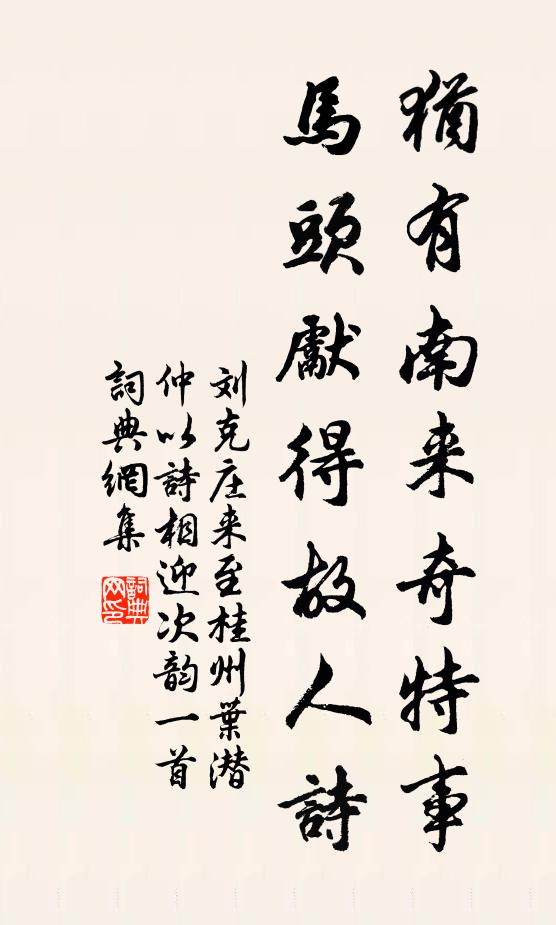 猶有南来奇特事
馬頭獻得故人詩
刘克庄来至桂州葉潜
仲以詩相迎次韵一首
詞典網集
詞典網印